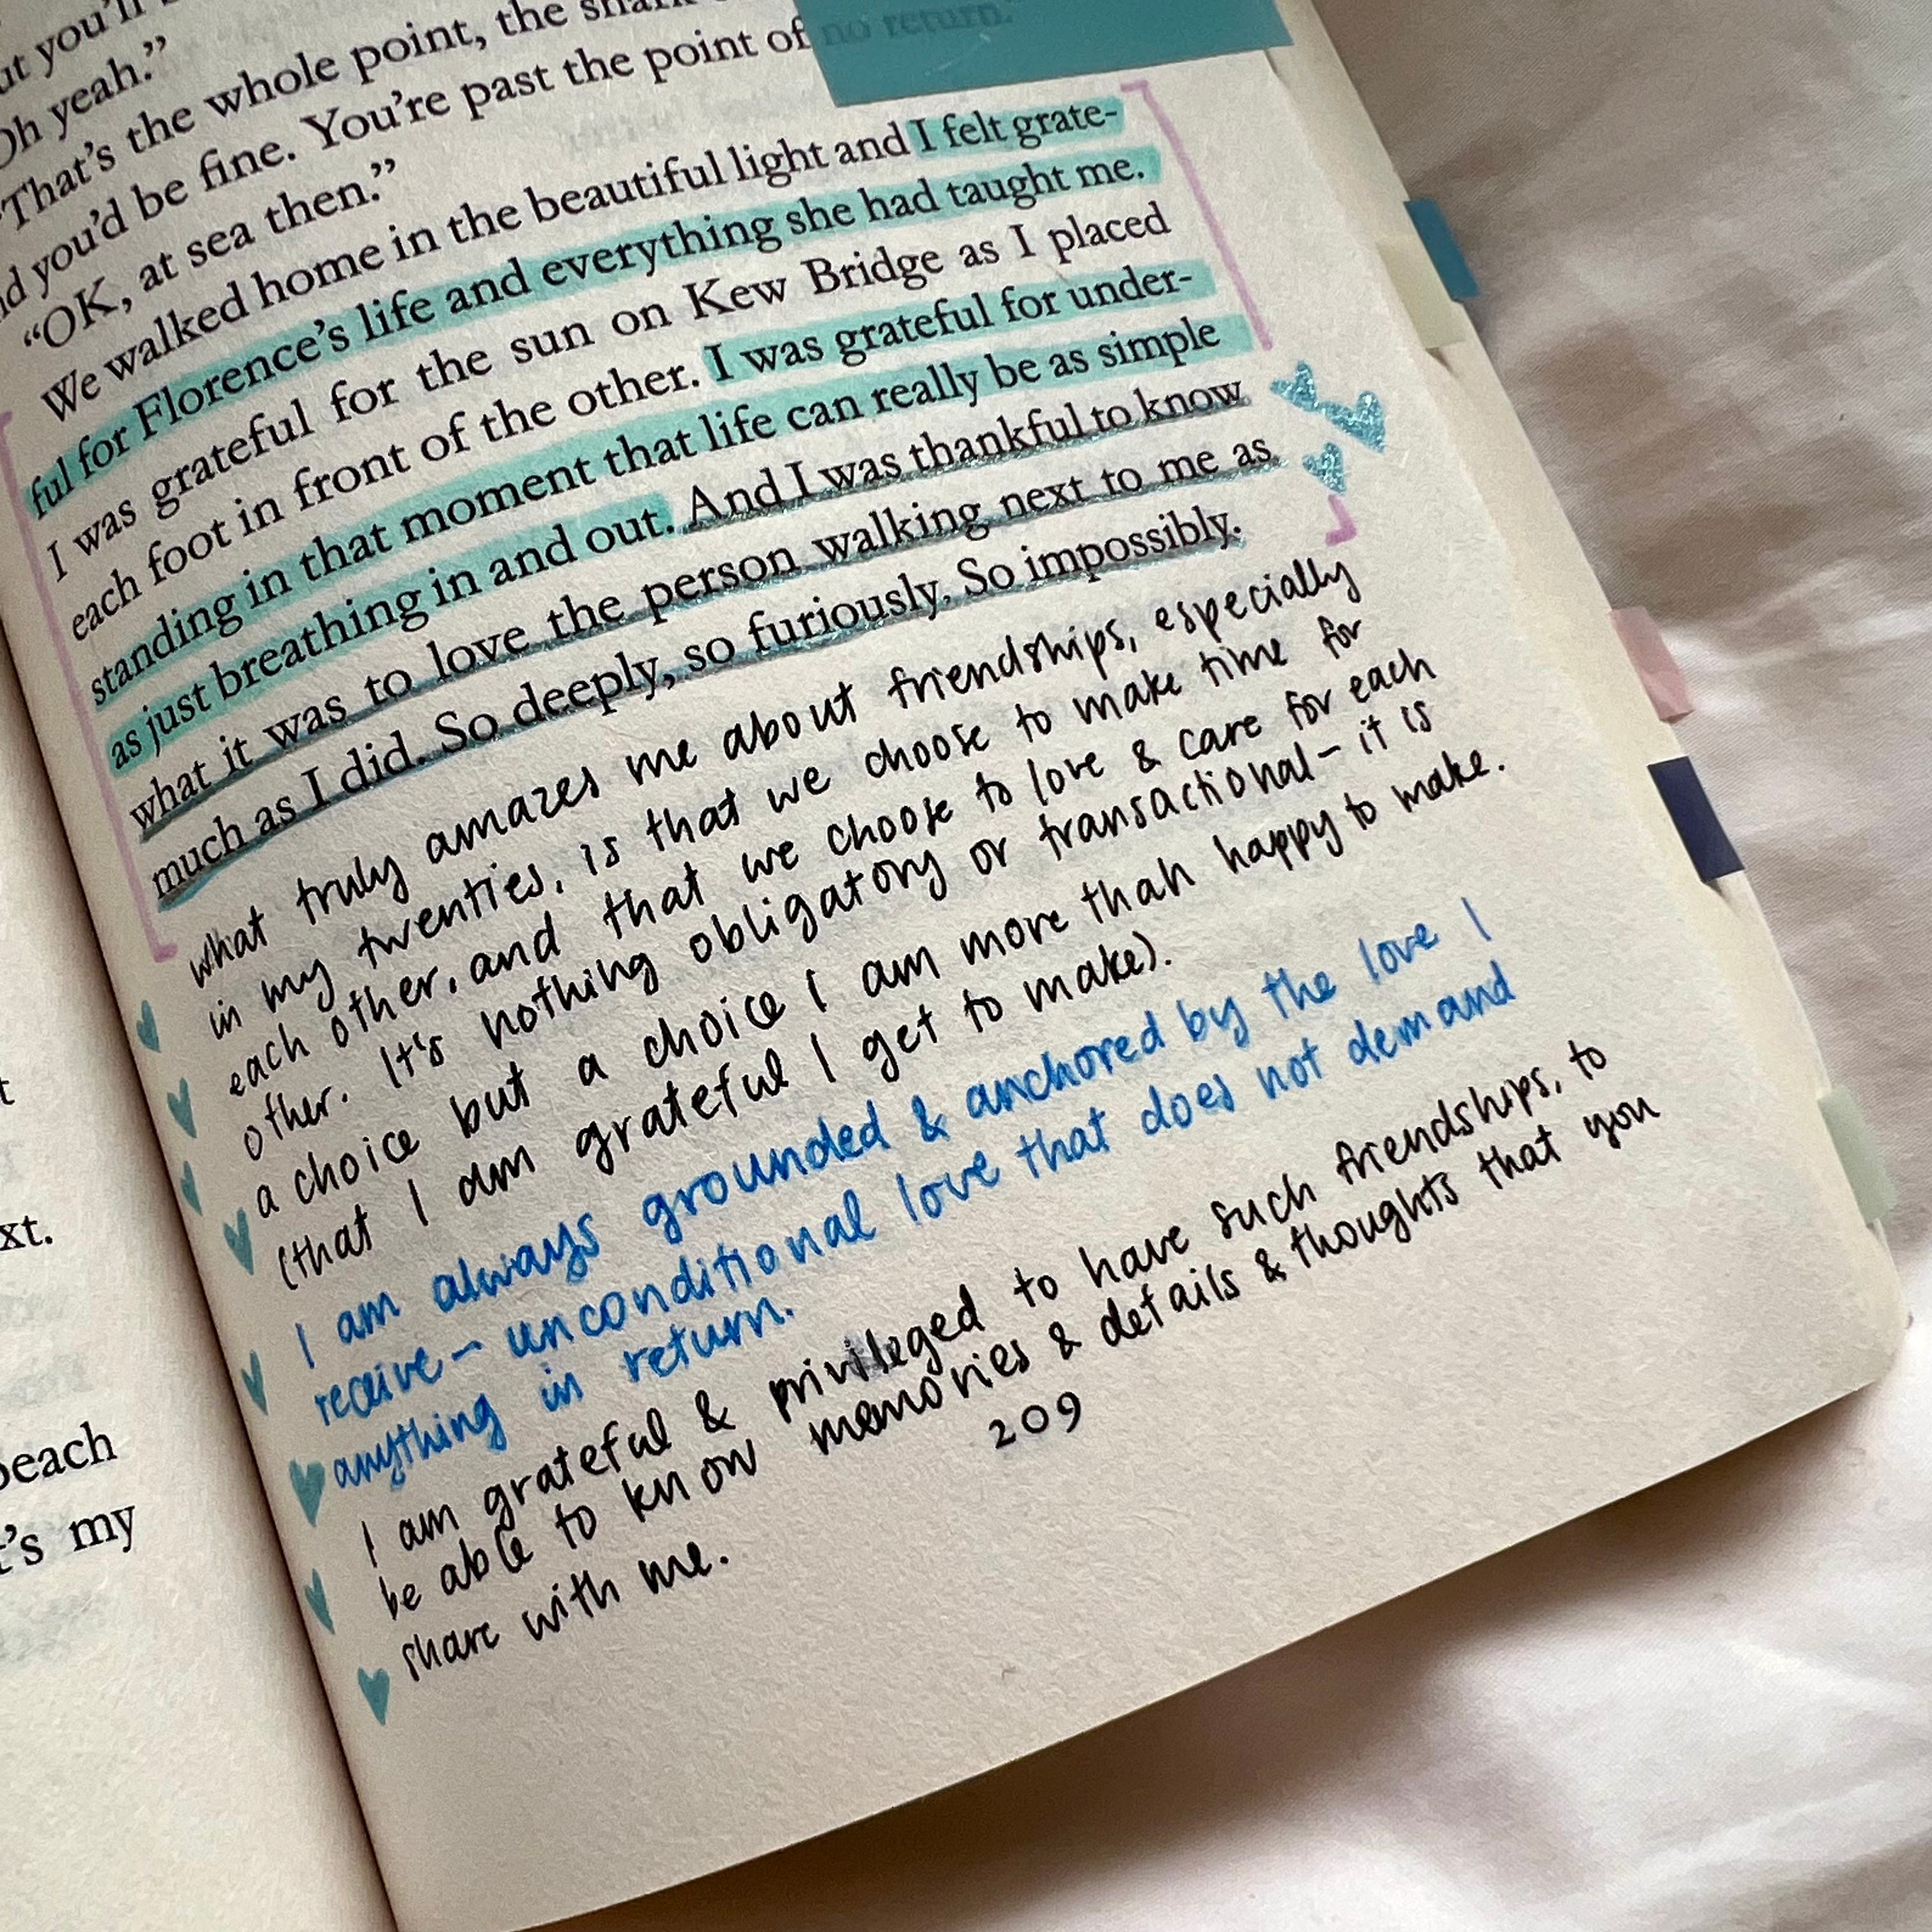 ut you'll
Oh yeah."
"That's the whole point, the shark
nd you'd be fine. You're past the point of no return."
"OK, at sea then."
We walked home in the beautiful light and I felt grate-
ful for Florence's life and everything she had taught me.
I was grateful for the sun on Kew Bridge as I placed
each foot in front of the other. I was grateful for under-
standing in that moment that life can really be as simple
as just breathing in and out. And I was thankful to know
what it was to love the person walking next to me as
much as I did. So deeply, so furiously. So impossibly.
what truly amazes me about friendships, especially
in my twenties, is that we choose to make time for
each other, and that we choose to love & care for each
other. It's nothing obligatory or transactional - it is
a choice but a choice I am more than happy to make.
(that I am grateful I get to make).
I am always grounded & anchored by the love I
receive - unconditional love that does not demand
anything in return.
I am grateful & privileged to have such friendships, to
be able to know memories & details & thoughts that you
share with me.
209
t
xt.
beach
t's my